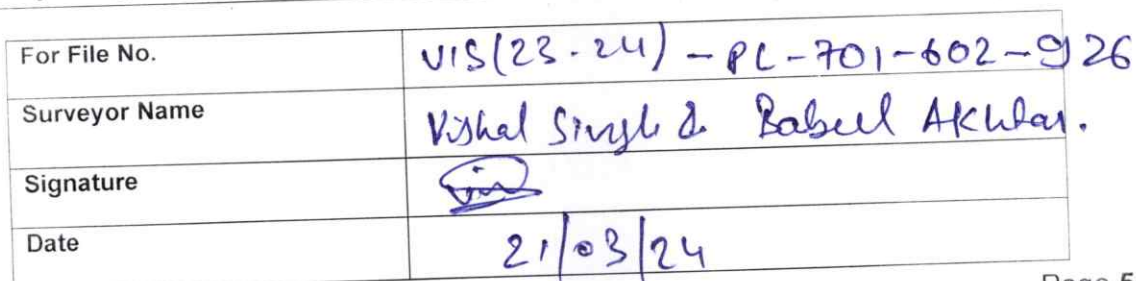 For File No. VIS(23-24) - PL-701-602-926
Surveyor Name Vishal Singh & Babeel Akhtar.
Signature
Date 21/03/24
Page 5